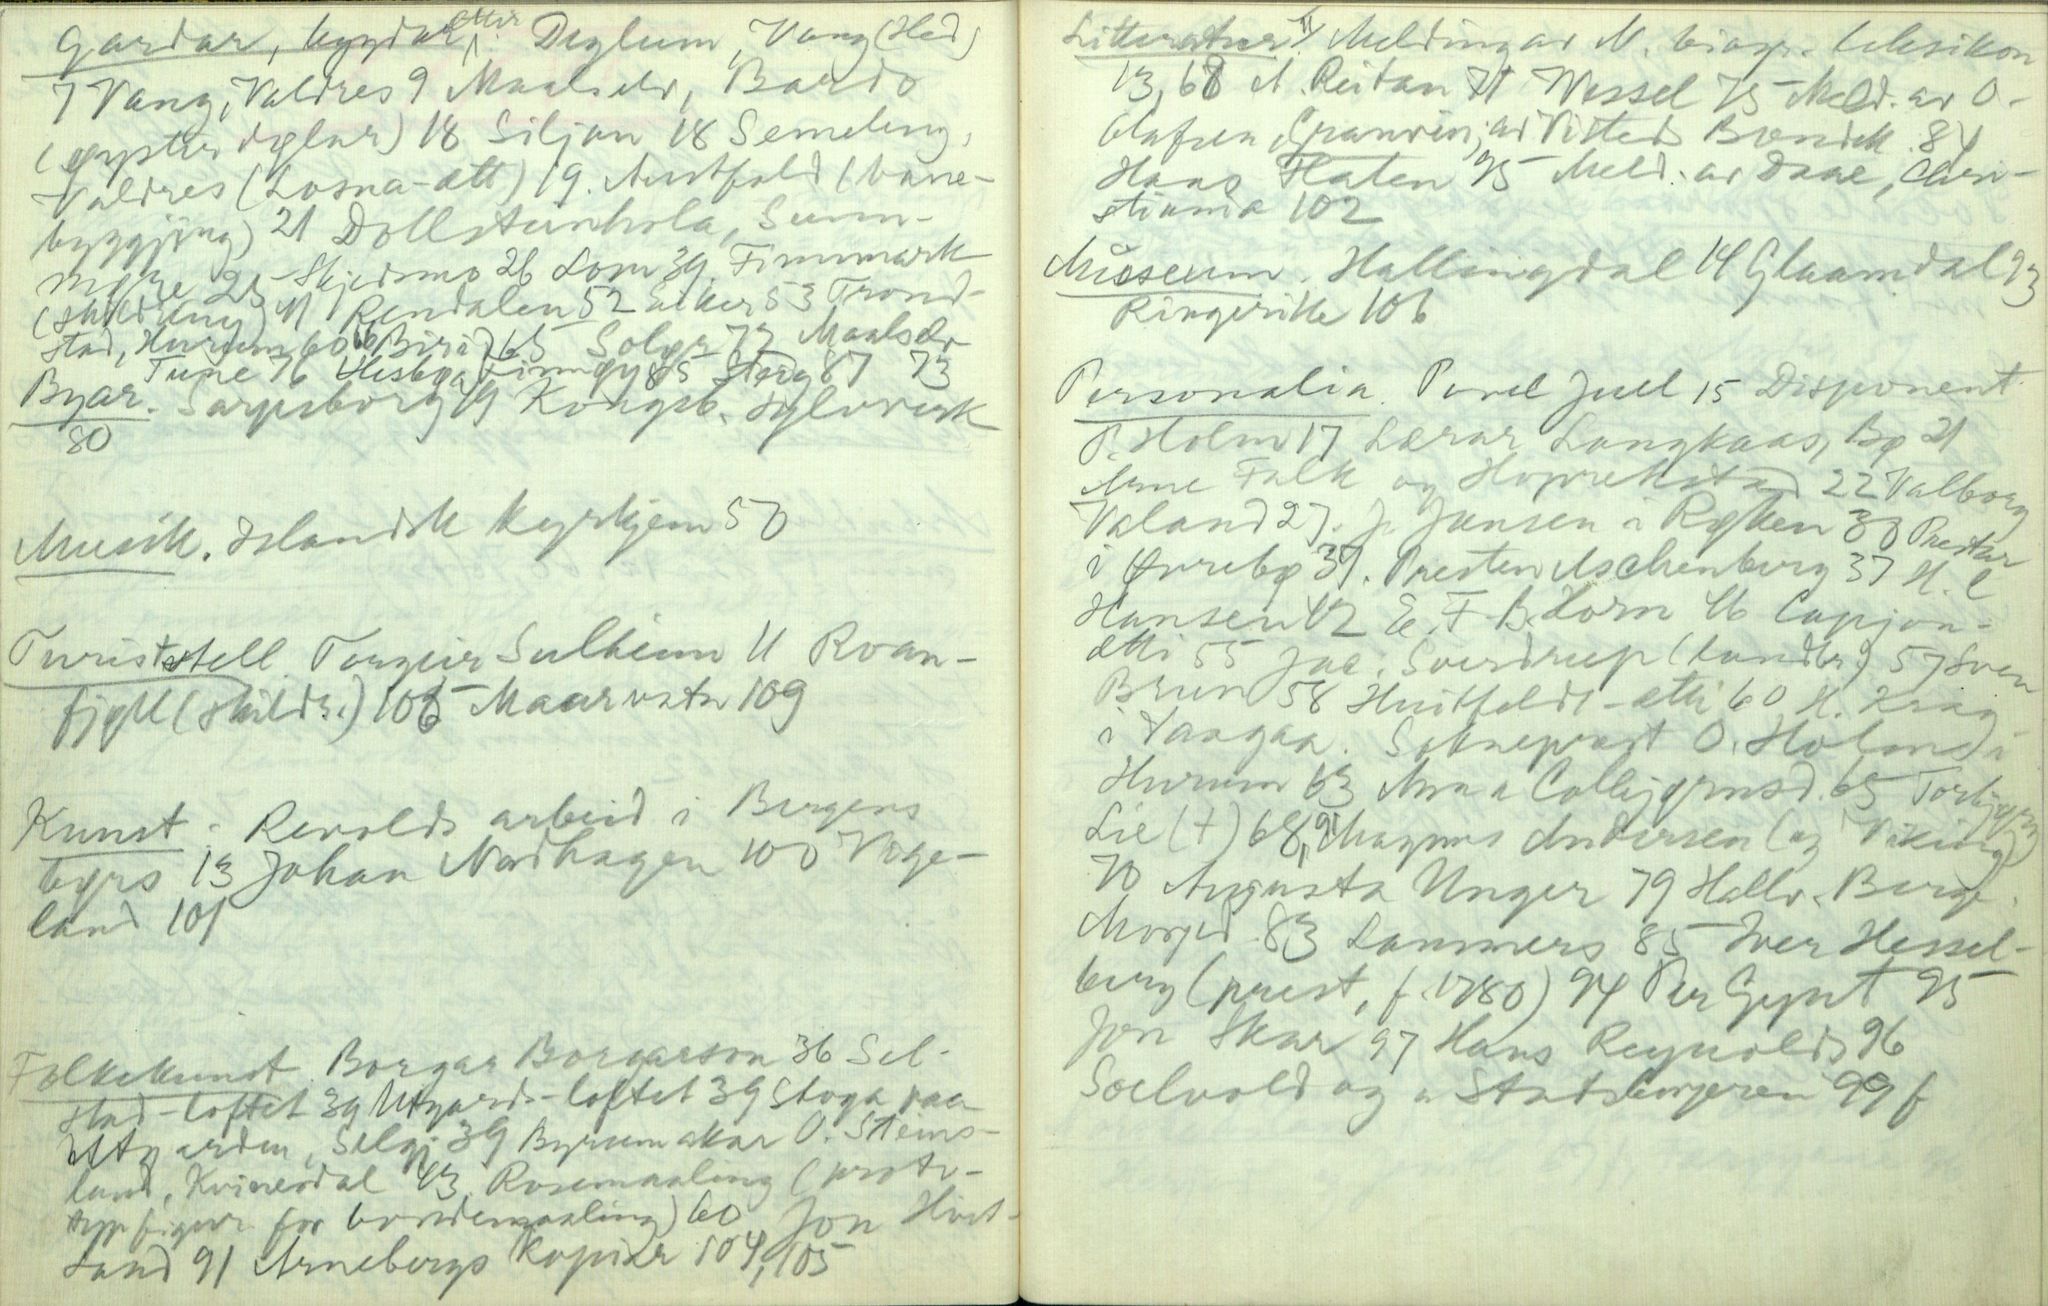 Gardar, bygdar, ætter. Deglum, Vang (Hed)
7 Vang, Valdres 9 Maalselv, Bardo
18 Siljan 18 Semeleng,
Valdres (Losna-ætt) 19. Austfold (bane-
byggjing) 21 Dollsteinhola, Sunn-
møre 25 Skjedsmo 26 Lom 39. Finnmark
(skildring) 41 Rendalen 52 Eiker 53 Trond-
stad, Hurum 60 Biri 65 Solør 72 Maalselv
Tune 76 85 87 73
Byar. Sarpsborg 19 Kongsb. Sylvverk
80
Musik. Islandsk kyrkjem 50
Turiststell. Torgeir Sulheim 11 Roan-
fjell (skildr.) 106 Maarvatn 109
Kunst. Revolds arbeid i Bergens
børs 13 Johan Nordhagen 100 Vige-
land 101
Folkekunst. Borgar Borgarson 36 Sel-
stad-loftet 39 Utgards-loftet 39 Stoga paa
Utgarden, Selgj. 39 Byrsemakar O. Steins-
land, Kvinesdal 43 Rosemaaling (proto-
typ figur for bondemaaling) 60 Jon Hust-
land 91 Arnebergs kopiar 104, 105
Litteratur. Meldingar N. biogr. leksikon
13, 68 A. Reitan 71 Wessel 75 Meld. av O.
Olafsen, Granvin, av Visted Bondek. 84
Hans Flaten 95 Meld. av Daae, Chri-
stiania 102
Museum. Hallingdal 14 Glaamdal 93
Ringerike 106
Personalia. Povel Juel 15 Disponent
P. Holm 17 Lærar Langkaas, Bø 21
Arne Falk og Hoprekstad 22 Valborg
Valand 27. J. Jansen i Røken 30 Prestar
i Øvrebø 37. Presten Aschenberg 37 H. C
Hansen 42 E. F. B. Horn 46 Capjon-
ætti 55 Jac. Sverdrup (landbr.) 57 Sven
Brun 58 Huitfeldt-ætti 60 H. Krag
i Vaagaa. Sokneprest O. Holm i
Hurum 63 Anna Colbjørnsd. 65 Torbjørn
Lie (†) 68, 91 Magnus Andersen (og Viking)
70 Augusta Unger 79 Hallv. Berge.
Morged. 83 Lammers 85 Iver Hessel-
berg (prest, f. 1780) 94 Per Gynt 95
Jon Skar 97 Hans Reynolds 96
Soelvold og "Statsborgeren" 99 f